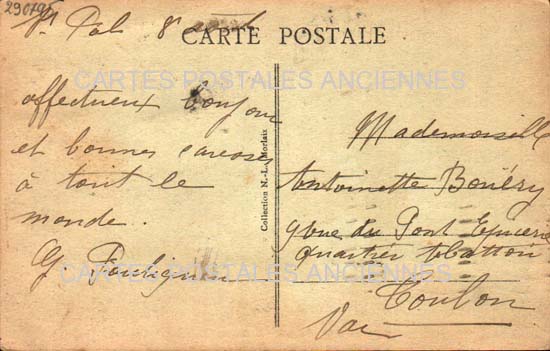 29079
St Pol 8
CARTE POSTALE
CARTES POSTALES ANCIENNES
affectueux bonjour
et bonnes caresses
à tout le
monde.
G
Collection N.-L., Morlaix
Mademoiselle
Antoinette Bouéry
9 rue du Pont
Quartier
Toulon
Var
CARTES POSTALES ANCIENNES